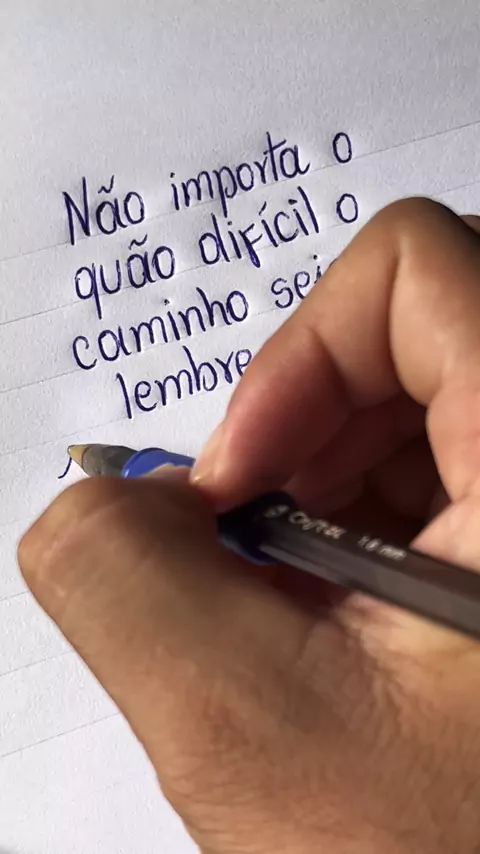 Não importa o
quão difícil o
caminho
lembre
1.6 mm